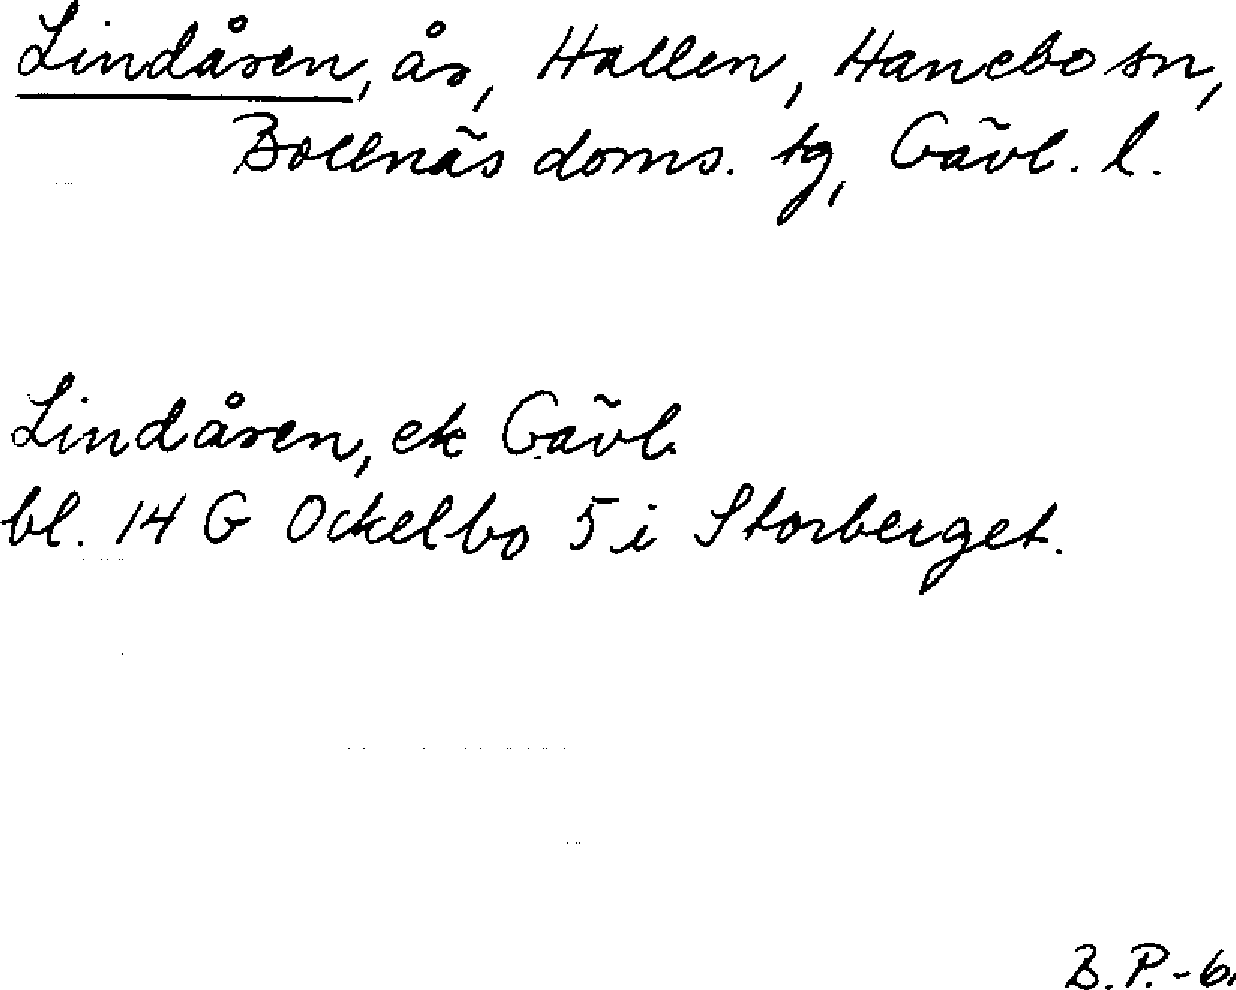 Lindåsen, ås, Hallen, Hanebo sn,
Bollnäs doms. tg, Gävl. l.
Lindåsen, ek Gävl.
bl. 14 G Ockelbo 5 i Storberget.
B.P.-6